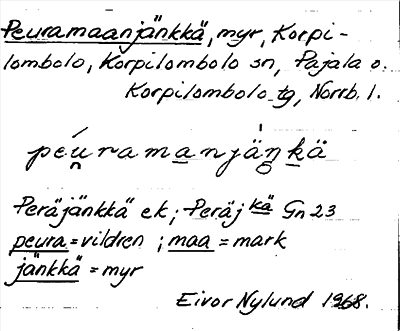 Peuramaanjänkkä, myr, Korpi-
lombolo, Korpilombolo sn, Pajala o.
Korpilombolo tg, Norrb. l.
péuramanjäŋkä
Peräjänkkä ek; Peräj kä Gn 23
peura = vildren ; maa = mark
jänkkä = myr
Eivor Nylund 1968.